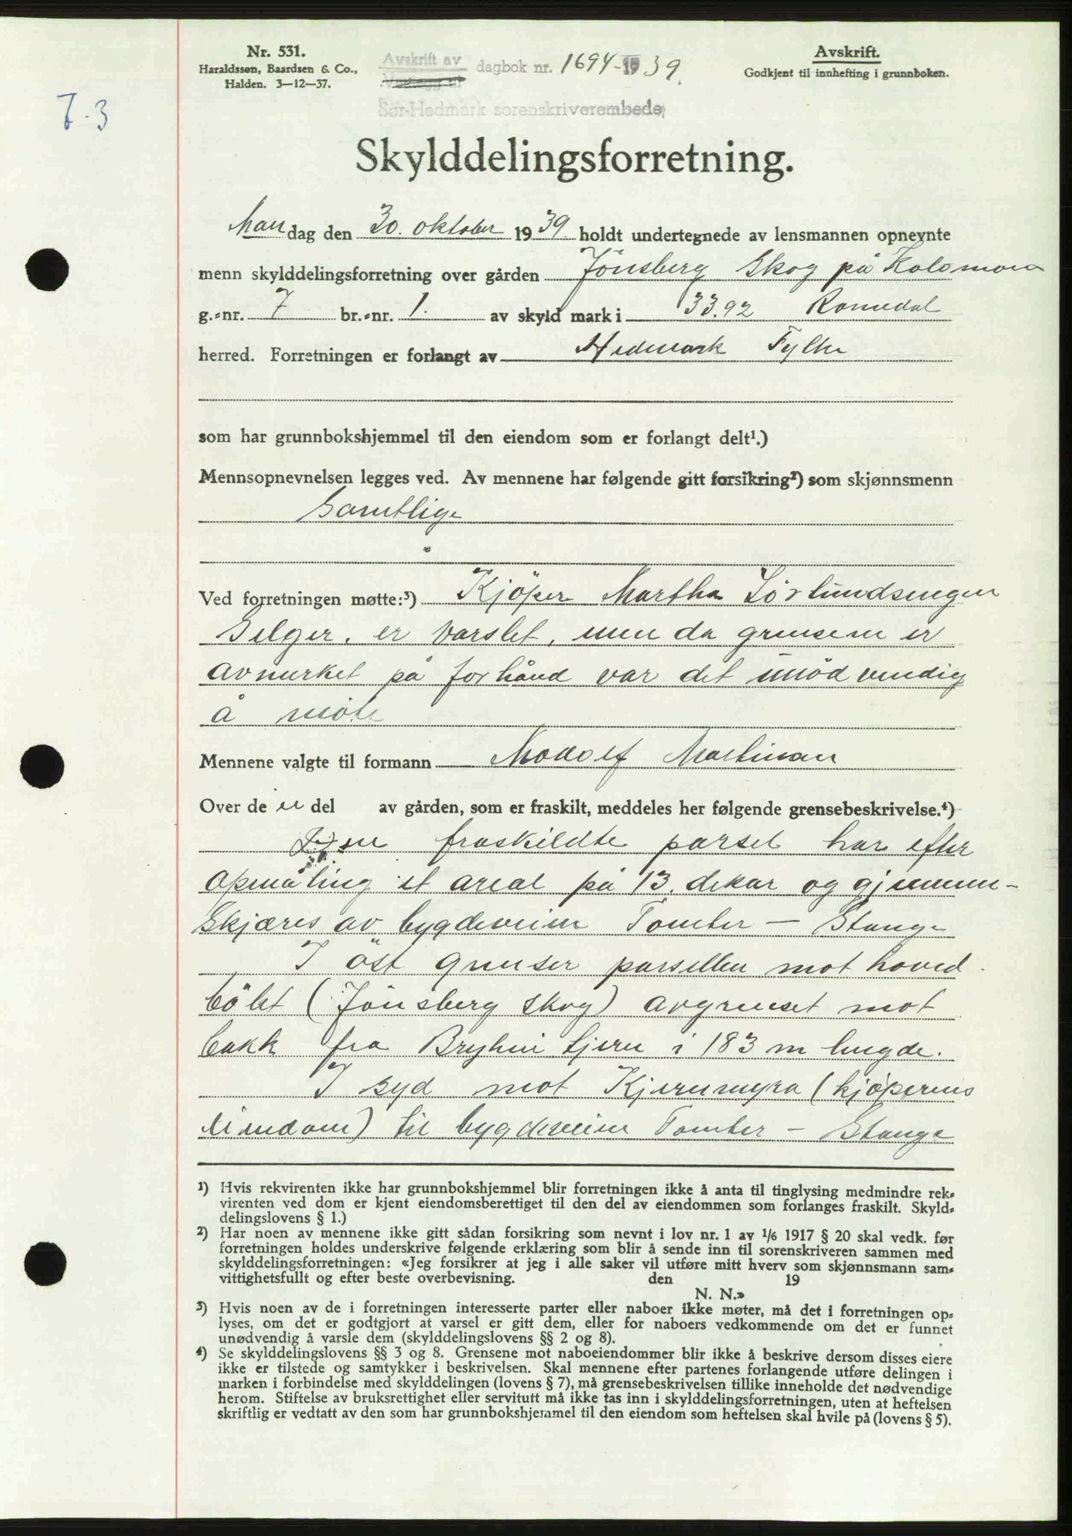 Nr. 531.
Haraldssøn, Baardsen & Co.,
Halden. 3—12—37.
Avskrift av dagbok nr. 1694-1939.
Sør-Hedmark sorenskriverembede;
Avskrift.
Godkjent til innhefting i grunnboken.
7-3
Skylddelingsforretning.
Mandag den 30. oktober 1939 holdt undertegnede av lensmannen opnevnte
menn skylddelingsforretning over gården Jönsberg Skog på Kolomoen
g.-nr. 7 br.-nr. 1. av skyld mark i 33.92 Romedal
herred. Forretningen er forlangt av Hedmark Fylke
som har grunnbokshjemmel til den eiendom som er forlangt delt¹.)
Mennsopnevnelsen legges ved. Av mennene har følgende gitt forsikring²) som skjønnsmenn
Samtlige
Ved forretningen møtte:³) Kjöper Martha Sörlundsengen
Selger, er varslet, men da grensene er
avmerket på forhånd var det unödvendig
å möte
Mennene valgte til formann Modolf Martinsen
Over de n del av gården, som er fraskilt, meddeles her følgende grensebeskrivelse.⁴)
Den fraskildte parsel har efter
opmåling et areal på 13. dekar og gjennem-
skjæres av bygdeveien Tomter — Stange
I öst grenser parsellen mot hoved-
bölet (Jönsberg skog) avgrenset mot
bekk fra Bryhni tjern i 183 m lengde.
I syd mot Kjernmyra (kjöperens
eiendom) til bygdeveien Tomter — Stange
¹) Hvis rekvirenten ikke har grunnbokshjemmel blir forretningen ikke å anta til tinglysing medmindre rek-
virenten ved dom er kjent eiendomsberettiget til den del av eiendommen som forlanges fraskilt. Skyld-
delingslovens § 1.)
²) Har noen av mennene ikke gitt sådan forsikring som nevnt i lov nr. 1 av 1/6 1917 § 20 skal vedk. før
forretningen holdes underskrive følgende erklæring som blir å sende inn til sorenskriveren sammen med
skylddelingsforretningen: «Jeg forsikrer at jeg i alle saker vil utføre mitt hverv som skjønnsmann sam-
vittighetsfullt og efter beste overbevisning. den 19
N. N.»
³) Hvis noen av de i forretningen interesserte parter eller naboer ikke møter, må det i forretningen op-
lyses, om det er godtgjort at varsel er gitt dem, eller for naboers vedkommende om det er funnet
unødvendig å varsle dem (skylddelingslovens §§ 2 og 8).
⁴) Se skylddelingslovens §§ 3 og 8. Grensene mot naboeiendommer blir ikke å beskrive dersom disses eiere
ikke er tilstede og samtykker i beskrivelsen. Skal mennene efter partenes forlangende utføre delingen i
marken i forbindelse med skylddelingen (lovens § 7), må grensebeskrivelsen tillike inneholde det nødvendige
herom. Stiftelse av bruksrettighet eller servitutt må ikke tas inn i skylddelingsforretningen, uten at heftelsen
skriftlig er vedtatt av den som har grunnbokshjemmel til den eiendom som heftelsen skal hvile på (lovens § 5).